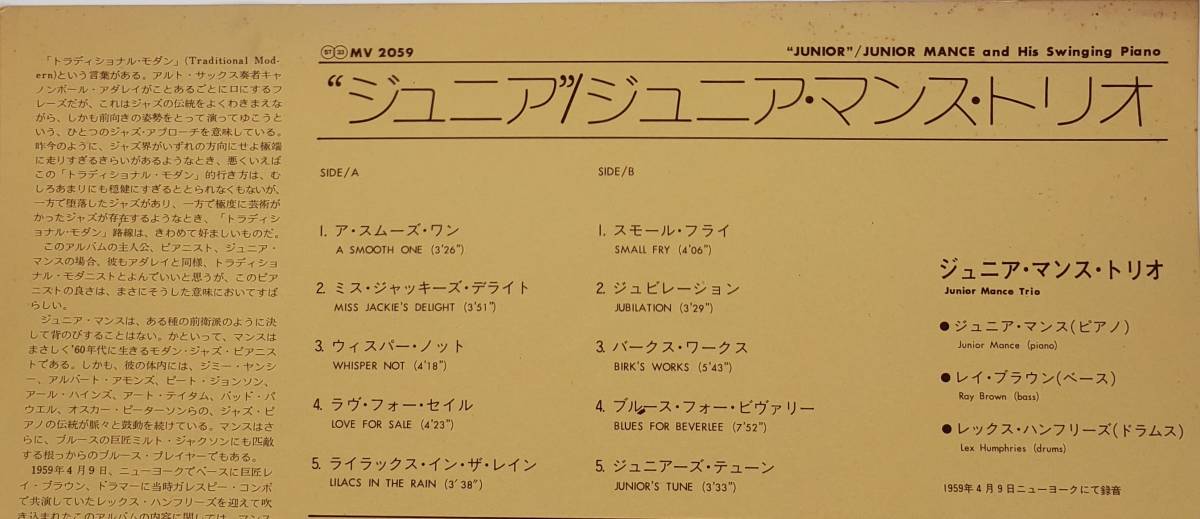 「トラディショナル・モダン」(Traditional Mod-
ern)という言葉がある。アルト・サックス奏者キャ
ノンボール・アダレイがことあるごとに口にするフ
レーズだが、これはジャズの伝統をよくわきまえな
がら、しかも前向きの姿勢をとって演ってゆこうと
いう、ひとつのジャズ・アプローチを意味している。
昨今のように、ジャズ界がいずれの方向にせよ極端
に走りすぎるきらいがあるようなとき、悪くいえば
この「トラディショナル・モダン」的行き方は、む
しろあまりにも穏健にすぎるととられなくもないが、
一方で堕落したジャズがあり、一方で極度に芸術が
かったジャズが存在するようなとき、「トラディシ
ョナル・モダン」路線は、きわめて好ましいものだ。
このアルバムの主人公、ピアニスト、ジュニア・
マンスの場合、彼もアダレイと同様、トラディショ
ナル・モダニストとよんでいいと思うが、このピア
ニストの良さは、まさにそうした意味においてすば
らしい。
ジュニア・マンスは、ある種の前衛派のように決
して背のびすることはない。かといって、マンスは
まさしく'60年代に生きるモダン・ジャズ・ピアニス
トである。しかも、彼の体内には、ジミー・ヤンシ
ー、アルバート・アモンズ、ピート・ジョンソン、
アール・ハインズ、アート・テイタム、バッド・パ
ウエル、オスカー・ピーターソンらの、ジャズ・ピ
アノの伝統が脈々と鼓動を続けている。マンスはさ
らに、ブルースの巨匠ミルト・ジャクソンにも匹敵
する根っからのブルース・プレイヤーでもある。
1959年4月9日、ニューヨークでベースに巨匠レ
イ・ブラウン、ドラマーに当時ガレスピー・コンボ
で共演していたレックス・ハンフリーズを迎えて吹
き込まれたこのアルバムの内容に関しては、マンス
ST 33 MV 2059
"JUNIOR"/JUNIOR MANCE and His Swinging Piano
"ジュニア"/ジュニア・マンス・トリオ
SIDE/A
1. ア・スムーズ・ワン
A SMOOTH ONE (3'26")
2. ミス・ジャッキーズ・デライト
MISS JACKIE'S DELIGHT (3'51")
3. ウィスパー・ノット
WHISPER NOT (4'18")
4. ラヴ・フォー・セイル
LOVE FOR SALE (4'23")
5. ライラックス・イン・ザ・レイン
LILACS IN THE RAIN (3'38")
SIDE/B
1. スモール・フライ
SMALL FRY (4'06")
2. ジュビレーション
JUBILATION (3'29")
3. バークス・ワークス
BIRK'S WORKS (5'43")
4. ブルース・フォー・ビヴァリー
BLUES FOR BEVERLEE (7'52")
5. ジュニアーズ・テューン
JUNIOR'S TUNE (3'33")
ジュニア・マンス・トリオ
Junior Mance Trio
● ジュニア・マンス(ピアノ)
Junior Mance (piano)
● レイ・ブラウン(ベース)
Ray Brown (bass)
● レックス・ハンフリーズ(ドラムス)
Lex Humphries (drums)
1959年4月9日ニューヨークにて録音